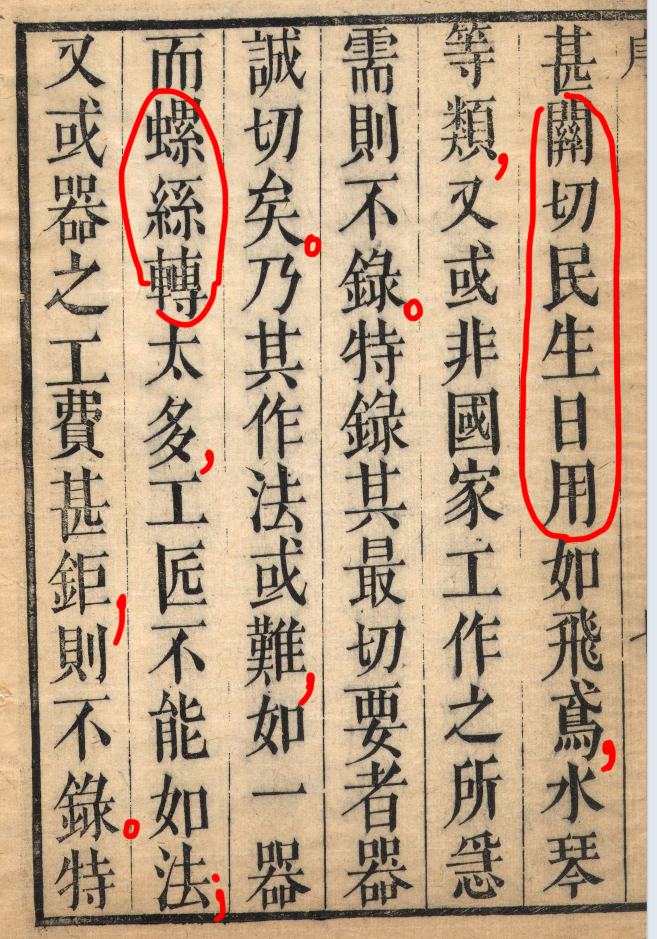 甚關切民生日用如飛鳶，水琴
等類，又或非國家工作之所急
需則不錄。特錄其最切要者器
誠切矣。乃其作法或難，如一器
而螺絲轉太多，工匠不能如法；
又或器之工費甚鉅，則不錄。特